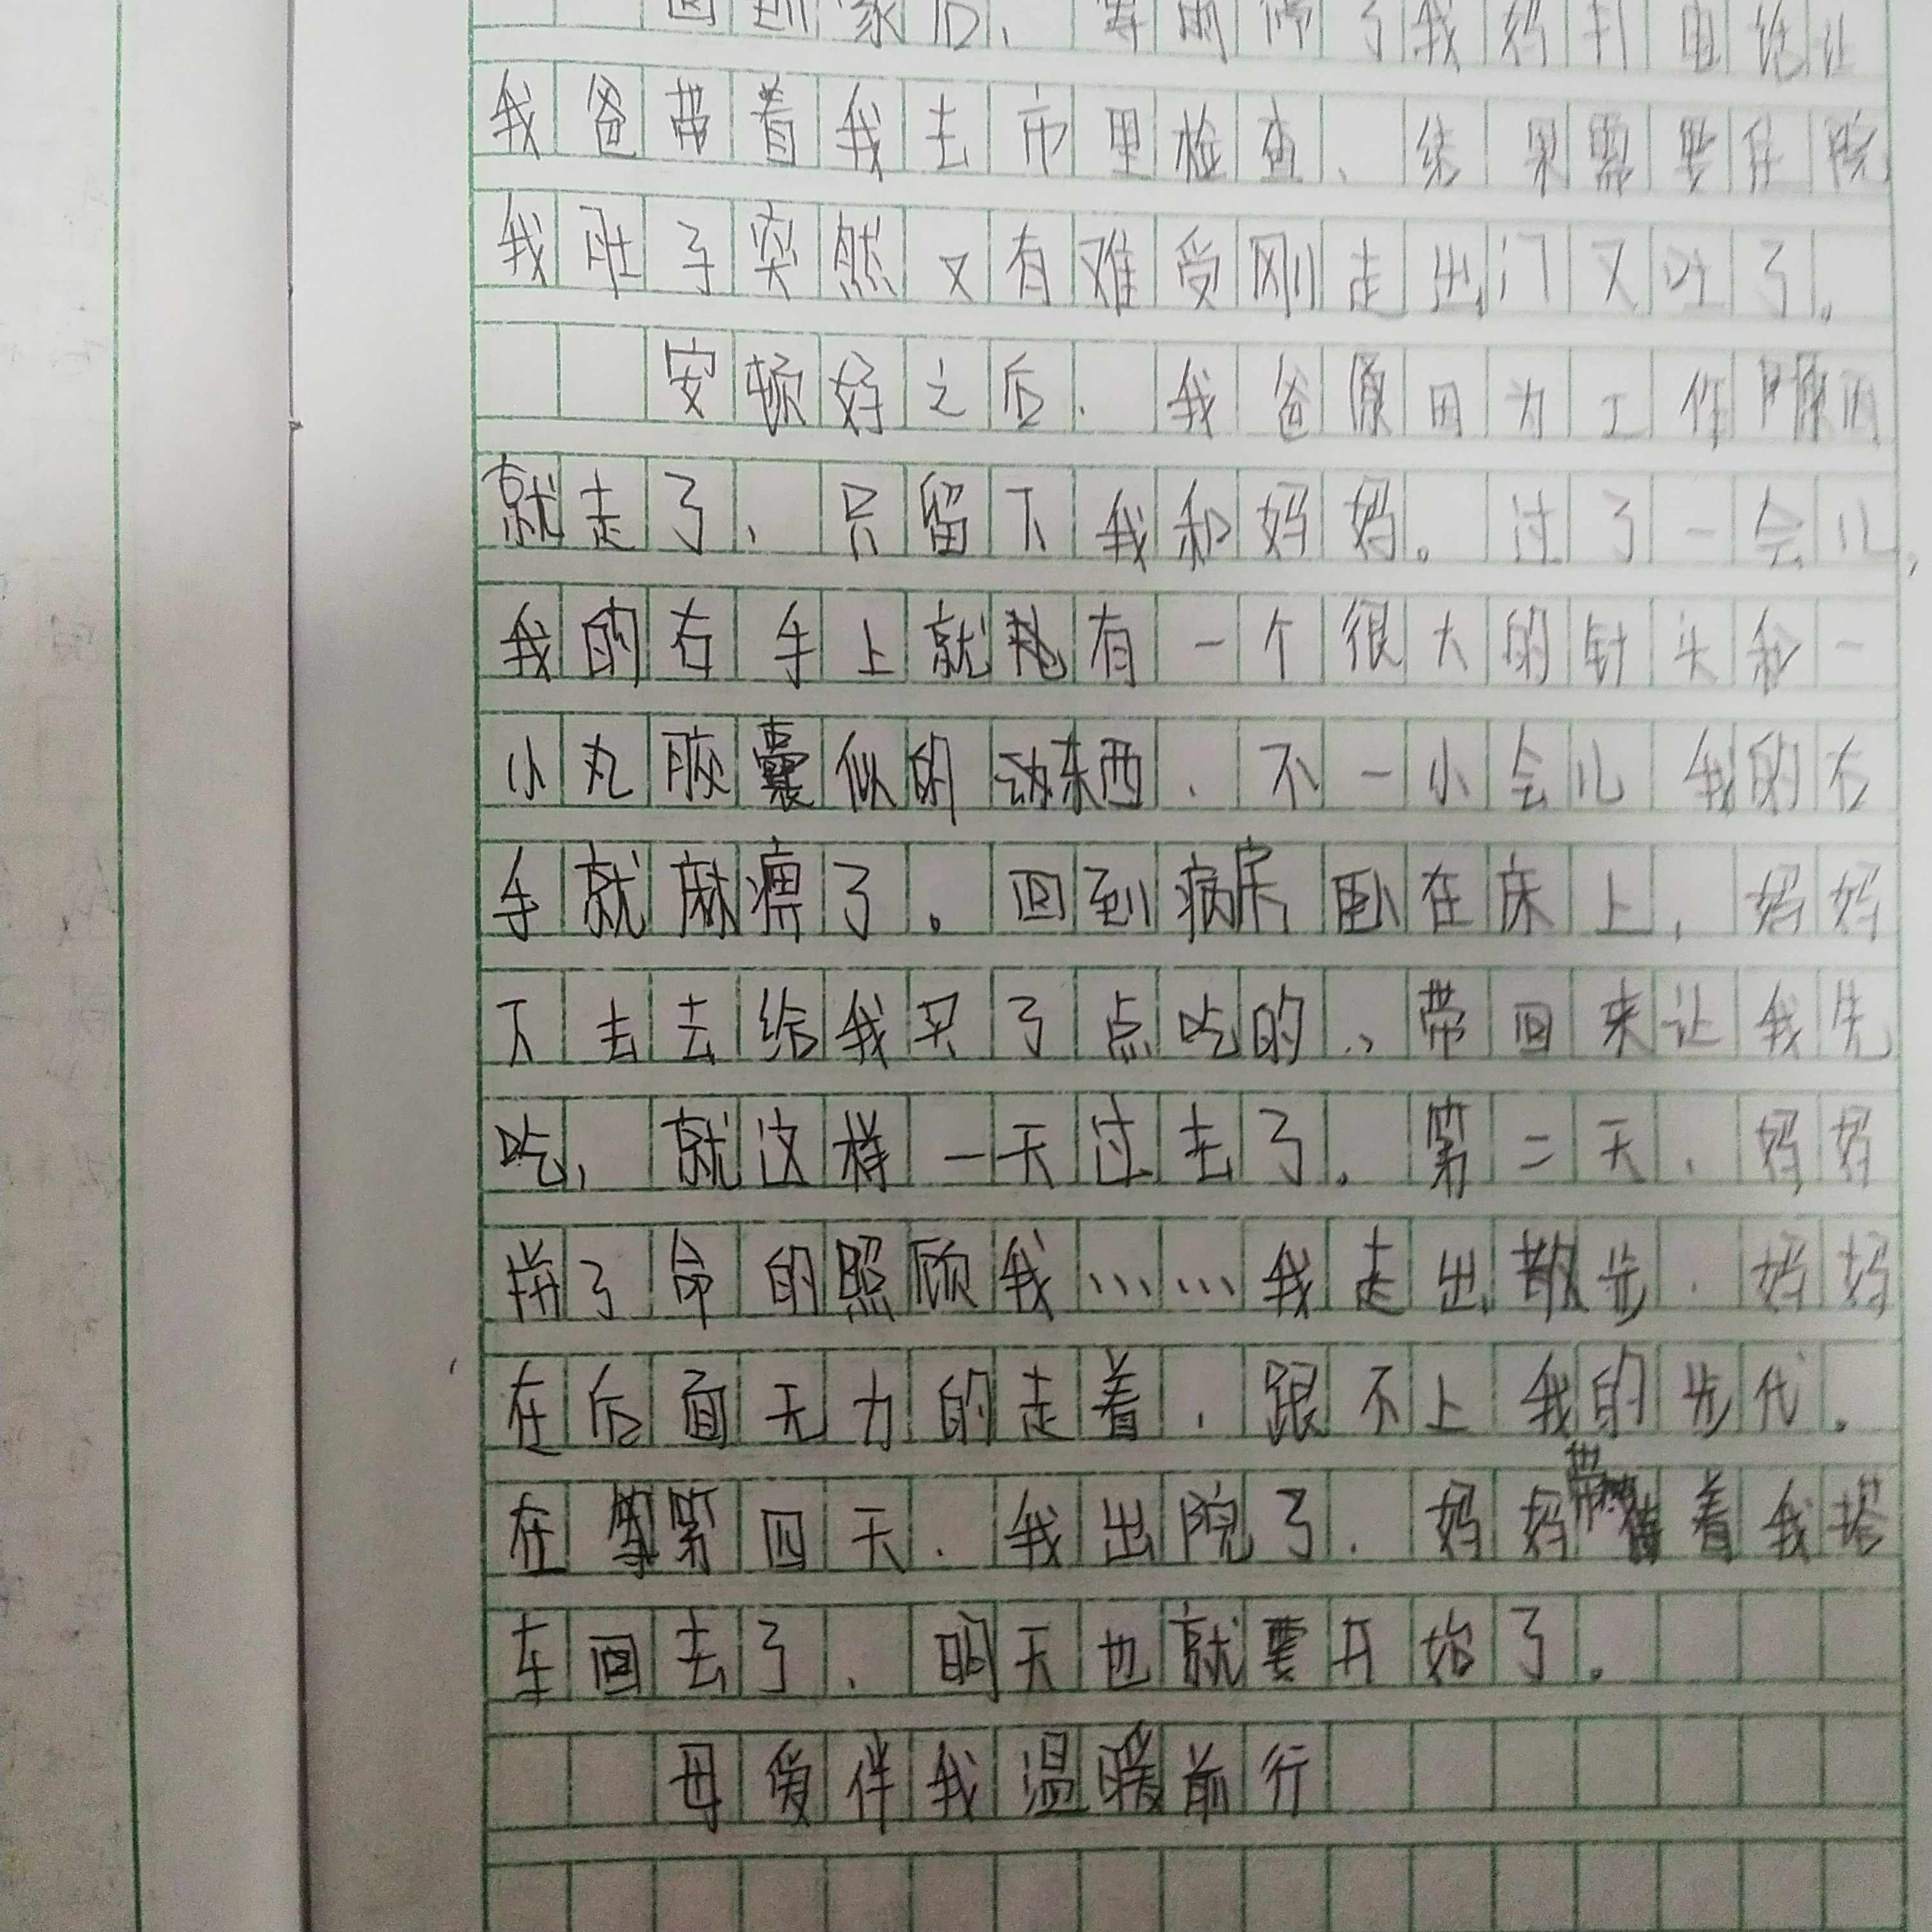 回到家后、等雨停了我妈打电话让
我爸带着我去市里检查、结果需要住院
我肚子突然又有难受刚走出门又吐了。
安顿好之后、我爸原因为工作原因
就走了、只留下我和妈妈。过了一会儿,
我的右手上就有一个很大的针头和一
小丸胶囊似的东西、不一小会儿我的右
手就麻痹了。回到病房卧在床上,妈妈
下去去给我买了点吃的、带回来让我先
吃,就这样一天过去了。第二天、妈妈
拼了命的照顾我……我走出散步、妈妈
在后面无力的走着、跟不上我的步代。
在第四天、我出院了、妈妈带着我搭
车回去了、明天也就要开始了。
母爱伴我温暖前行